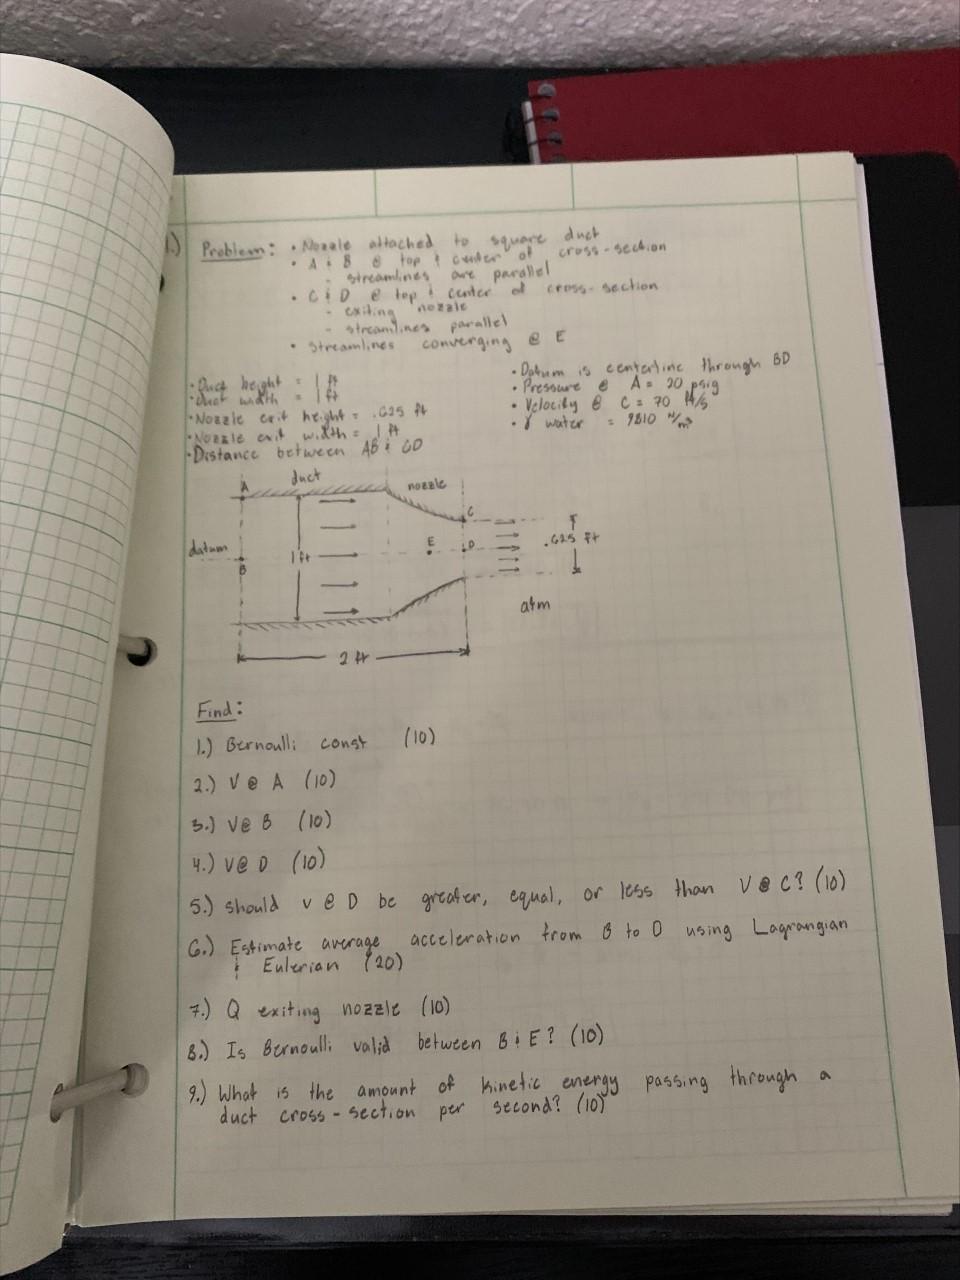 1.) Problem: • Nozzle attached to square duct
• A & B @ top & center of cross-section
- streamlines are parallel
• C & D @ top & center of cross-section
- exiting nozzle
- streamlines parallel
• Streamlines converging @ E
• Duct height = 1 ft
• Duct width = 1 ft
• Nozzle exit height = .625 ft
• Nozzle exit width = 1 ft
• Distance between AB & CD
• Datum is centerline through BD
• Pressure @ A = 20 psig
• Velocity @ C = 70 ft/s
• γ water = 9810 N/m³
A duct nozzle
C
datum 1 ft E D .625 ft
B
atm
2 ft
Find:
1.) Bernoulli const (10)
2.) V @ A (10)
3.) V@ B (10)
4.) V@ D (10)
5.) Should V @ D be greater, equal, or less than V @ C? (10)
6.) Estimate average acceleration from B to D using Lagrangian
& Eulerian (20)
7.) Q exiting nozzle (10)
8.) Is Bernoulli valid between B & E? (10)
9.) What is the amount of kinetic energy passing through a
duct cross-section per second? (10)